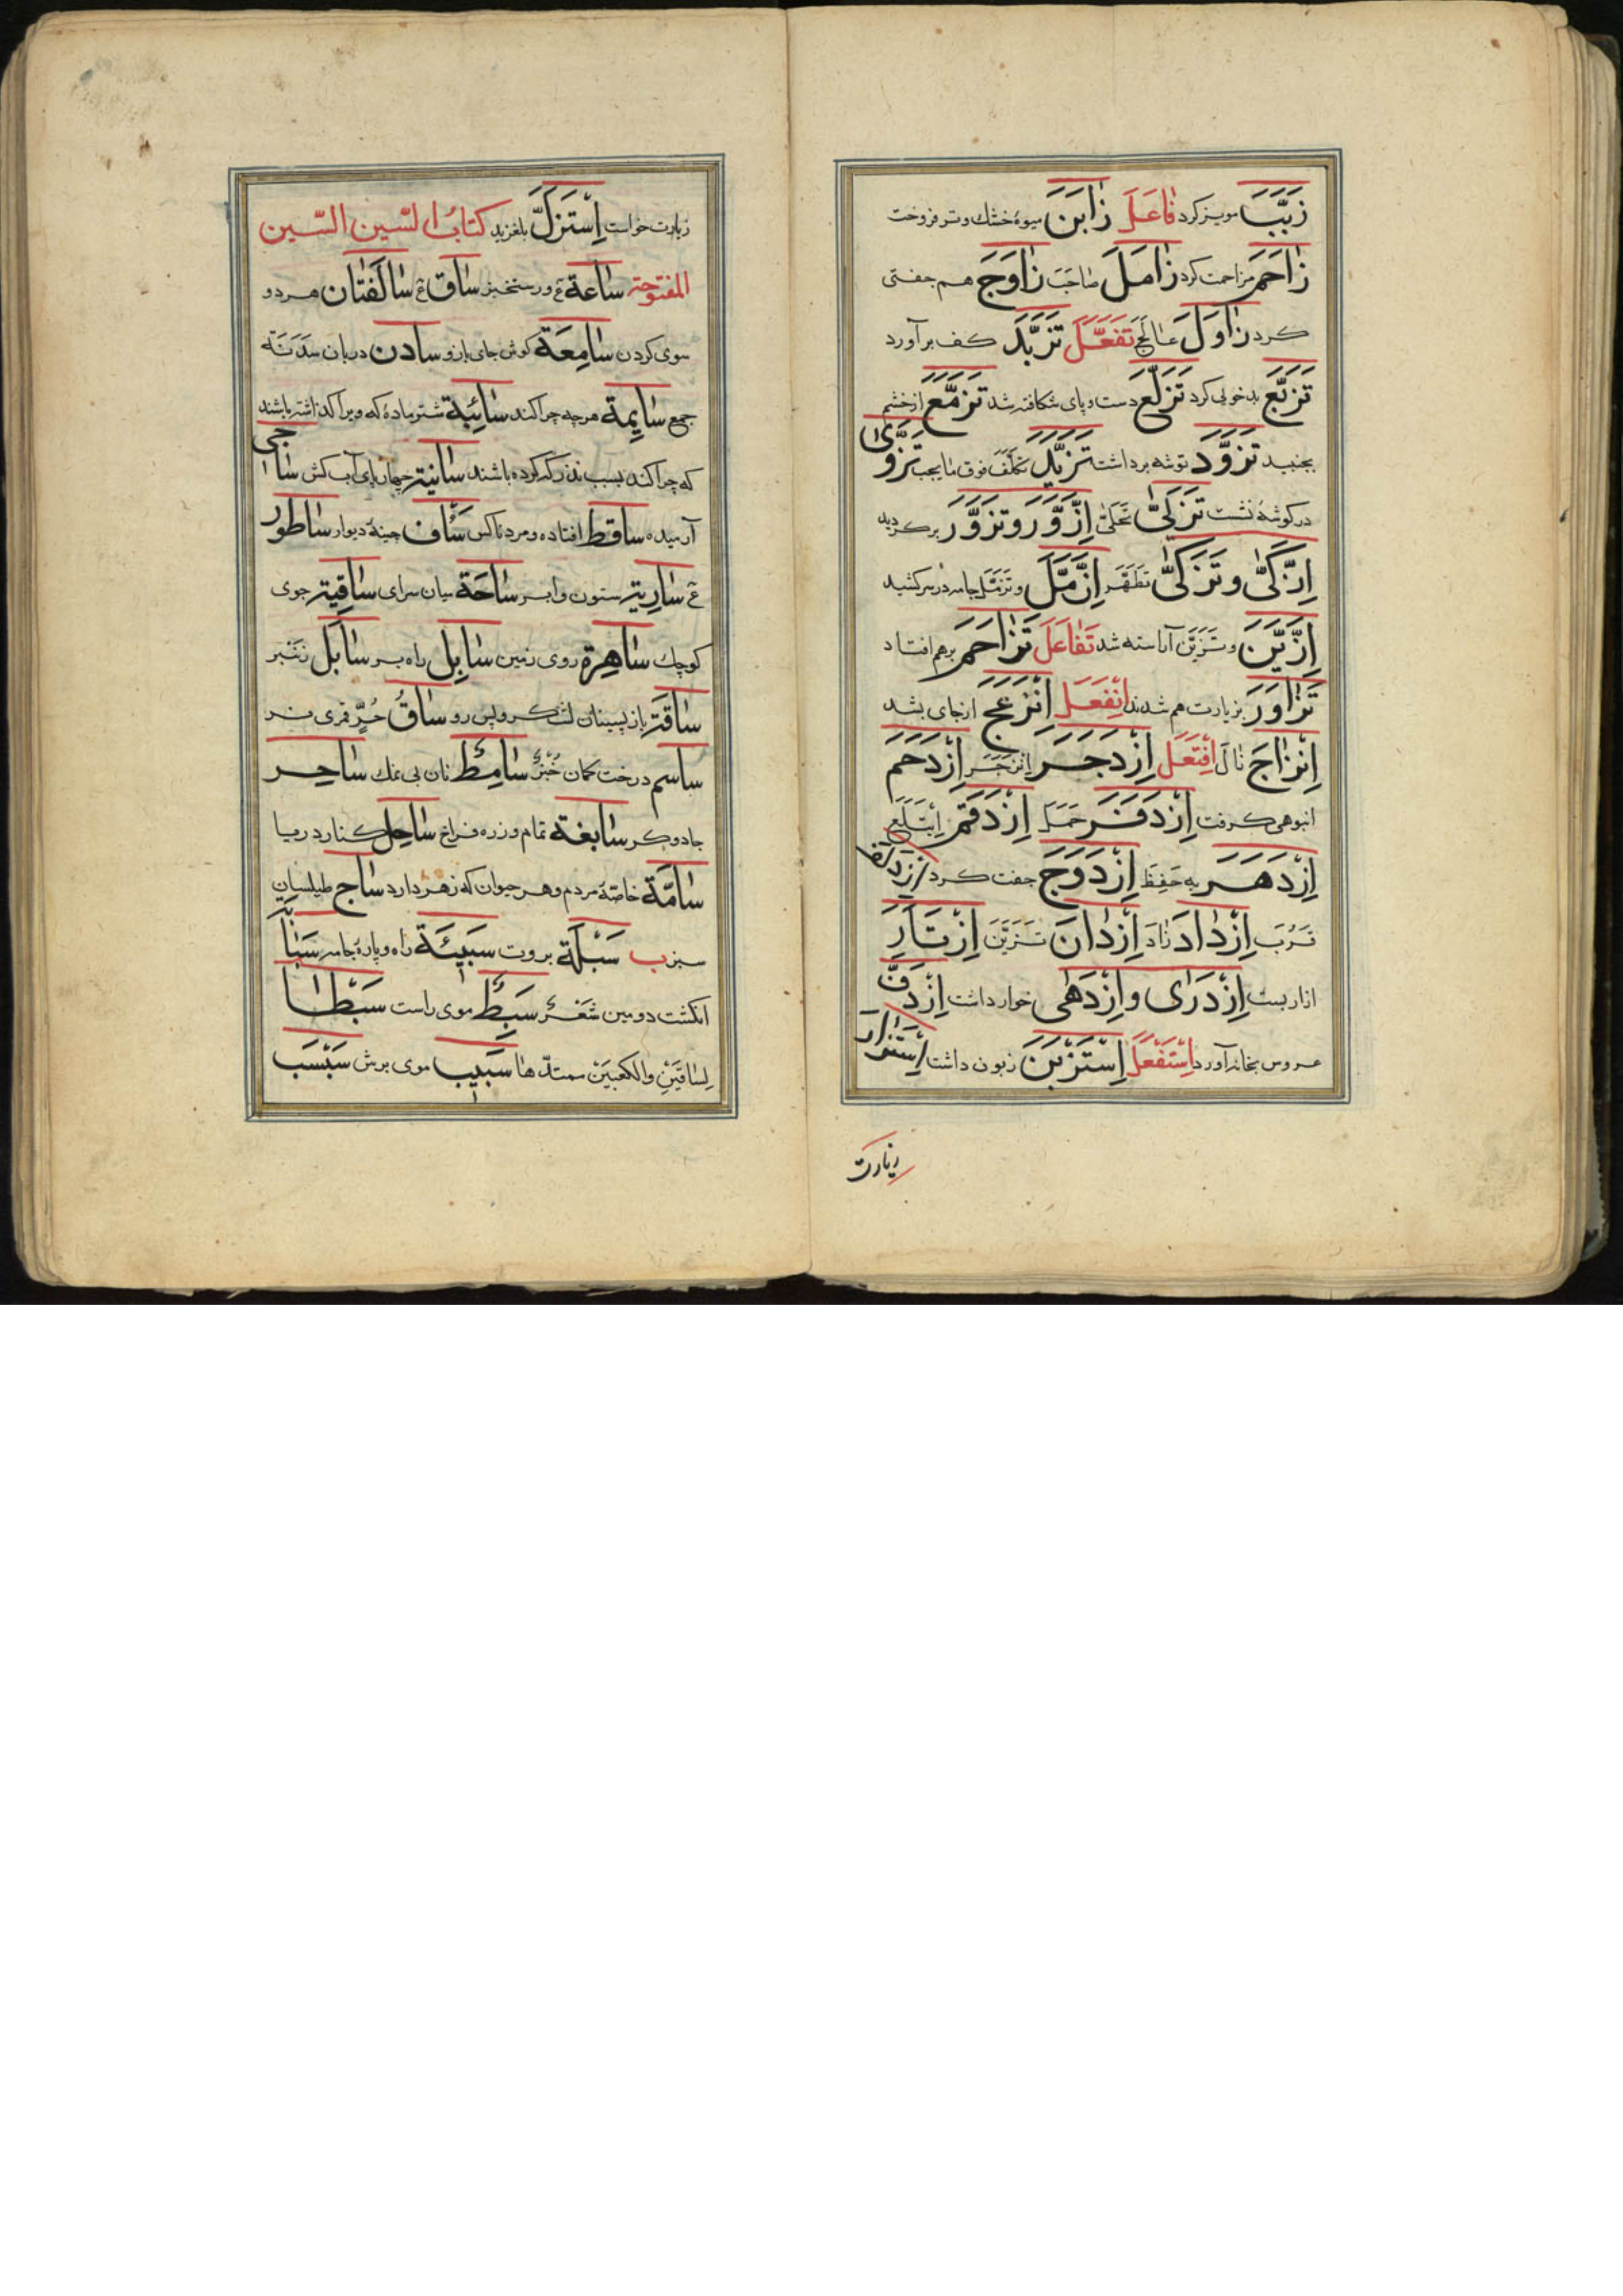 زَبَّبَ مویز کرد فَاعَلَ زَابَنَ میوهٔ خشك وتر فروخت
زَاحَمَ مزاحمت کرد زَامَلَ صَاحَبَ زَاوَجَ هم جفتی
کرد زَاوَلَ عَالَجَ تَفَعَّلَ تَزَبَّدَ کف برآورد
تَزَبَّعَ بد خویی کرد تَزَلَّعَ دست وپای شکافته شد تَزَمَّعَ از خشم
بجنبید تَزَوَّدَ توشه برداشت تَزَیَّدَ تکلّف فوق مایجب تَزَوَّی
در گوشهٔ نشست تَزَکَّی اِزَّوَّرَ وتَزَوَّرَ برگردید
اِزَّکَّی وتَزَکَّی تَطَهَّرَ اِزَّمَّلَ وتَزَمَّلَ جامه درسر کشید
اِزَّیَّنَ وتَزَیَّنَ آراسته شد تَفَاعَلَ تَزَاحَمَ برهم افتاد
تَزَاوَرَ بزیارت هم شدند اِنْفَعَلَ اِنْزَعَجَ ازجای بشد
اِنْزَاحَ زَالَ اِفْتَعَلَ اِزْدَجَرَ اِنْزَجَرَ اِزْدَحَمَ
انبوهی کرفت اِزْدَفَرَ حَمَلَ اِزْدَقَمَ اِبْتَلَعَ
اِزْدَهَرَ به حَفِظَ اِزْدَوَجَ جفت کرد اِزْدَلَفَ
قَرُبَ اِزْدَادَ زَادَ اِزْدَانَ تَزَیَّنَ اِزْتَآرِ
ازار بست اِزْدَرَای واِزْدَهَی خوار داشت اِزْدَفَّ
عروس بخانه آورد اِسْتَفْعَلَ اِسْتَزْبَنَ زبون داشت اِسْتَزَارَ
زیارت
زیارت خواست اِسْتَزَلَّ بلغزید کتابُ السّین السّین
المفتوحة سَاعَة ع ورستخیز سَاق ع سَالفَتَان هر دو
سوی کردن سَامِعَة کوش جای بازو سَادن دربان سَدَنَة
جمع سَایِمَة هرچه چرا کند سَائِبَة شتر مادهٔ که ویرا کذاشته باشند
که چرا کند بسبب نذر که کرده باشند سَانِیَة چهارپای آب کش سَاجی
آرمیده سَاقِط افتاده ومرد ناکس سَاف چینهٔ دیوار سَاطور
ع سَارِیَة ستون وابر سَاحَة میان سرای سَاقِیَة جوی
کوچك سَاهِرَة روی زمین سَابِل راه بر سَابل
سَاقَة بازپسینان لشکر وپس رو سَاقُ حُرٍّ قمری نر
ساسم درخت کمان خُبْزٌ سَامِطٌ نان بی نمك سَاحِر
جادوکر سَابغَة تمام وزره فراخ سَاحِل کنار دریا
سَامَّة خاصّهٔ مردم وهر حیوان که زهر دارد سَاج طیلسان
سبز ب سَبَلَة بروت سَبِیئَة راه وپارهٔ جامه
انکشت دومین شَعَرٌ سَبِطٌ موی راست سَبْطَا
لِسَاقَیْنِ والکعبَیْن سَبِیب موی برش سَبْسَب